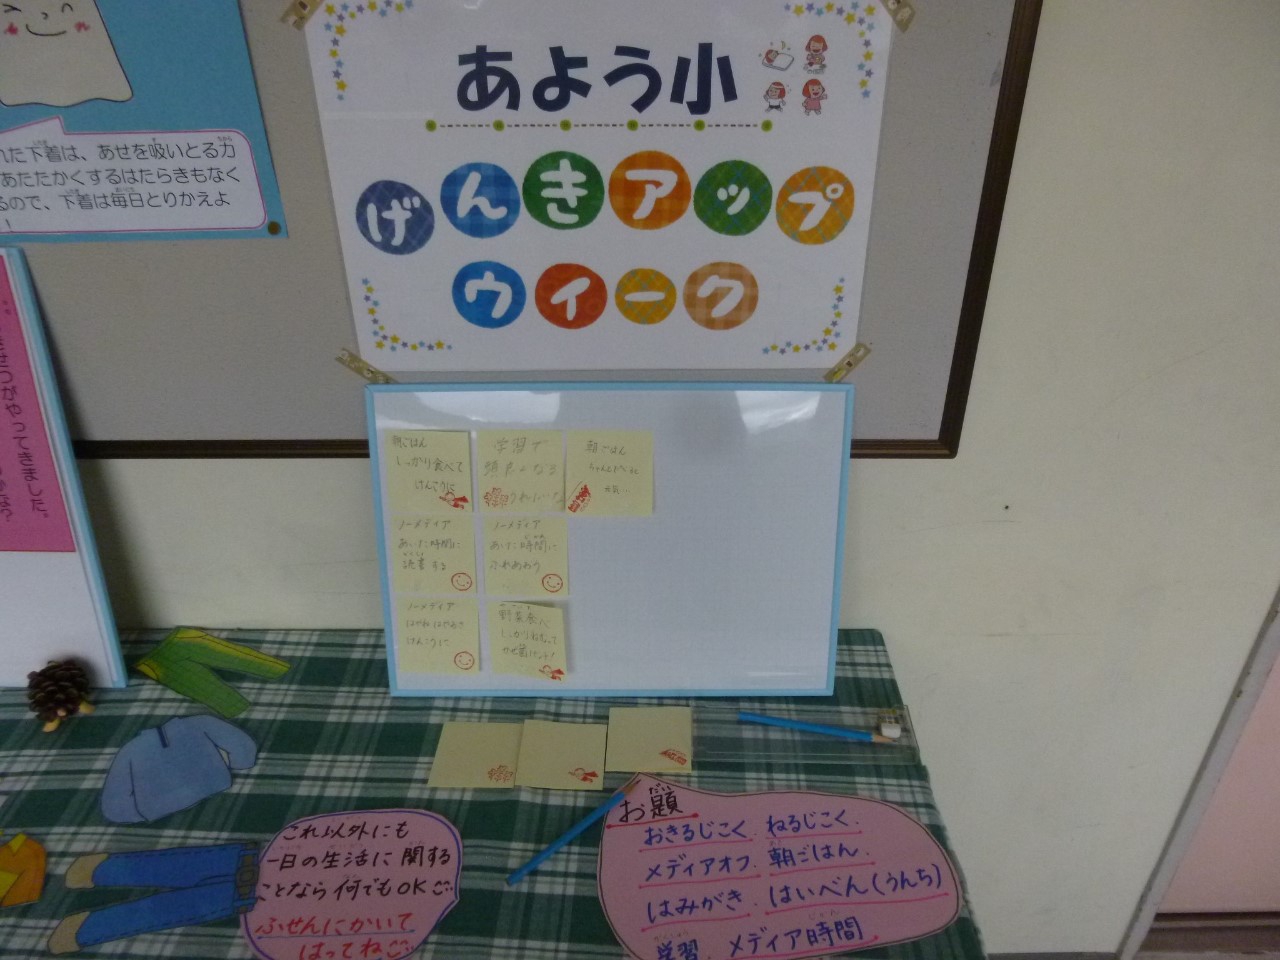 れた下着は、あせを吸いとる力
あたたかくするはたらきもなく
るので、下着は毎日とりかえよ
あよう小
げんきアップ
ウィーク
がやってきました。
朝ごはん
しっかり食べて
けんこうに
学習で
頭良くなる
うれしいな
朝ごはん
元気…
ノーメディア
あいた時間に
読書する
ノーメディア
あいた時間に
ふれあおう
ノーメディア
けんこうに
野菜食べ
しっかりねむって
かぜ
お題
おきるじこく、ねるじこく、
メディアオフ、朝ごはん、
はみがき、はいべん(うんち)
学習、メディア時間
これ以外にも
一日の生活に関する
ことなら何でもOK
ふせんにかいて
はってね